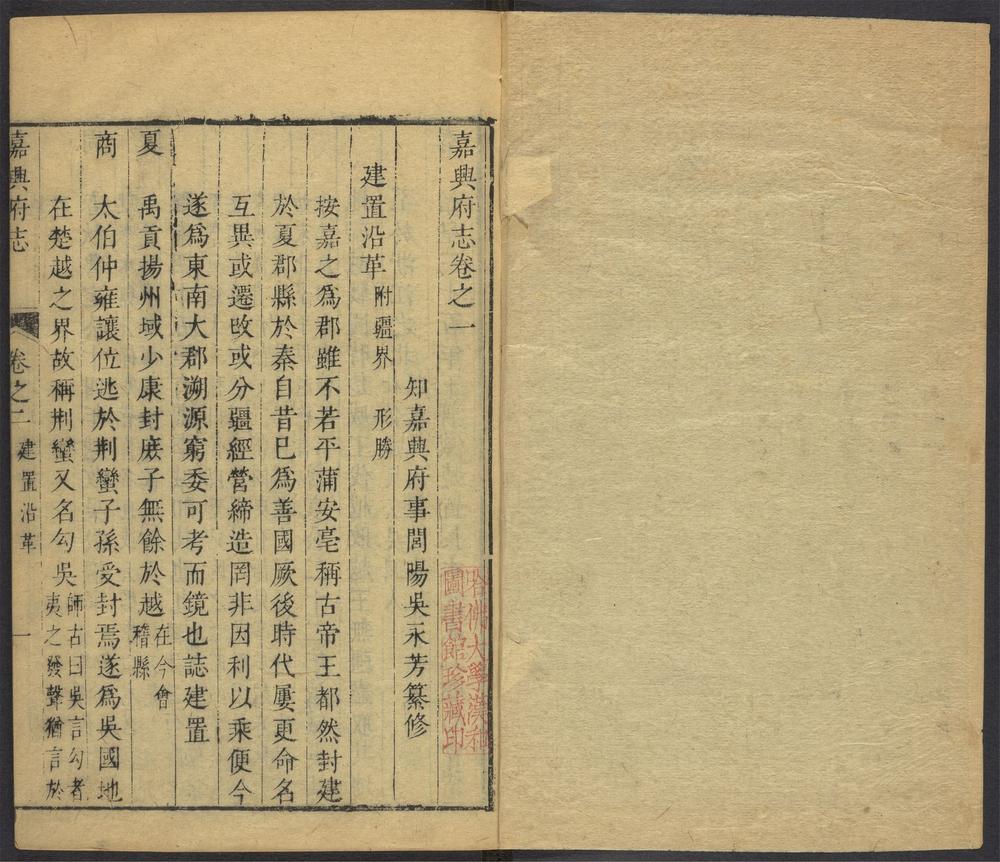 嘉興府志卷之一
知嘉興府事閭陽吳永芳纂修
建置沿革 附疆界 形勝
按嘉之為郡雖不若平蒲安亳稱古帝王都然封建
於夏郡縣於秦自昔巳為善國厥後時代屢更命名
互異或遷改或分疆經營締造罔非因利以乘便今
遂為東南大郡溯源窮委可考而鏡也誌建置
夏 禹貢揚州域少康封庶子無餘於越 在今會
稽縣
商 太伯仲雍讓位逃於荆蠻子孫受封焉遂為吳國地
在楚越之界故稱荆蠻又名勾吳 師古曰吳言勾者
夷之發聲猶言於
嘉興府志 卷之二 建置沿革 一
哈佛大學漢和
圖書館珍藏印